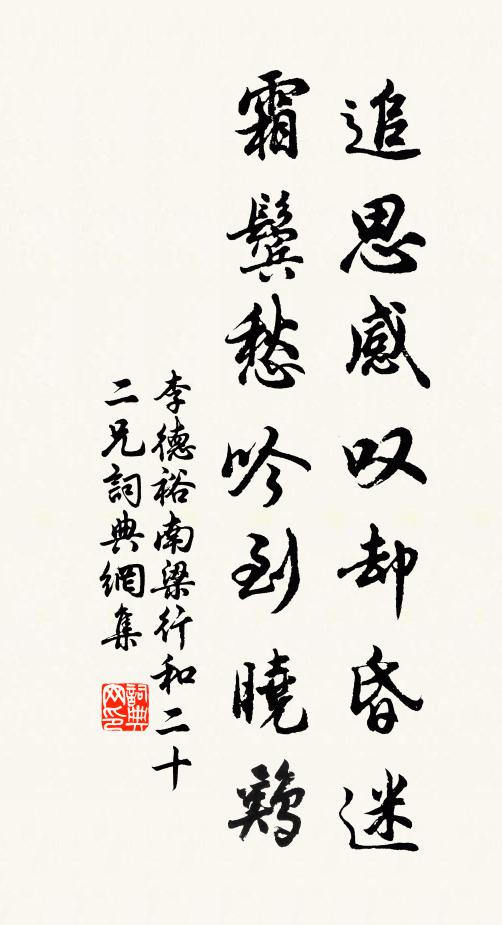 追思感叹却昏迷
霜鬓愁吟到曉鷄
李德裕南梁行和二十
二兄詞典網集
詞典网印